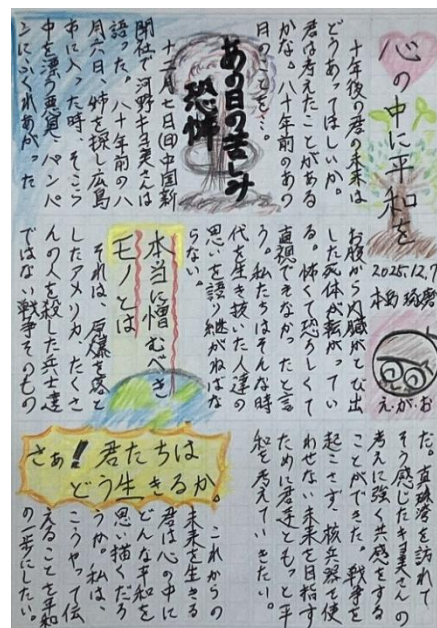 心の中に平和を
2025.12.7
え・が・お
十年後の君の未来は
どうあってほしいか。
君は考えたことがある
かな。八十年前のあの
日のことを…。
あの日の苦しみ
恐怖
十二月七日(日)中国新
聞社で河野キヨ美さんは
語った。八十年前の八
月六日、姉を探し広島
市に入った時、そこら
中を漂う異臭、パンパ
ンにふくれあがった
お腹から内臓がとび出
した死体が転がってい
る。怖くて恐ろしくて
直視できなかったと言
う。私たちはそんな時
代を生き抜いた人達の
思いを語り継がねばな
らない。
本当に憎むべき
モノとは
それは、原爆を落と
したアメリカ、たくさ
んの人を殺した兵士達
ではない戦争そのもの
だ。真珠湾を訪れて
そう感じたキヨ美さんの
考えに強く共感をする
ことができた。戦争を
起こさず、核兵器で使
わせない未来を目指す
ために君達ともっと平
和を考えていきたい。
さぁ!君たちは
どう生きるか。
これからの
未来を生きる
君は心の中に
どんな平和を
思い描くだろ
うか。私は、
こうやって伝
えることを平和
の一歩にしたい。